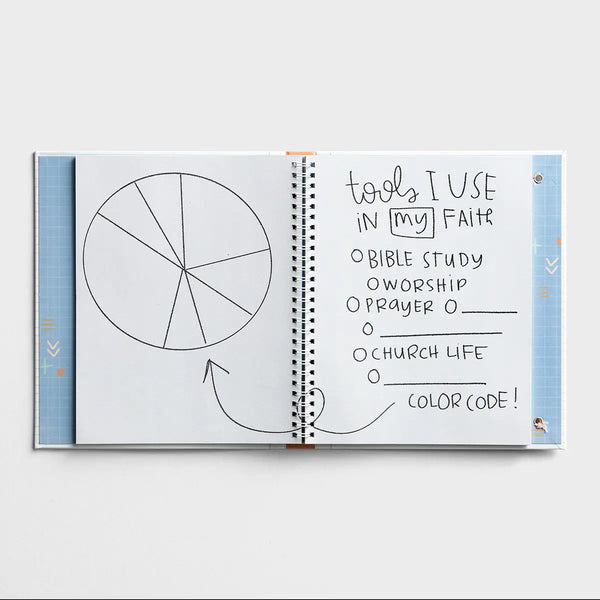 tools I USE
IN my FAITH
BIBLE STUDY
WORSHIP
PRAYER
CHURCH LIFE
COLOR CODE!